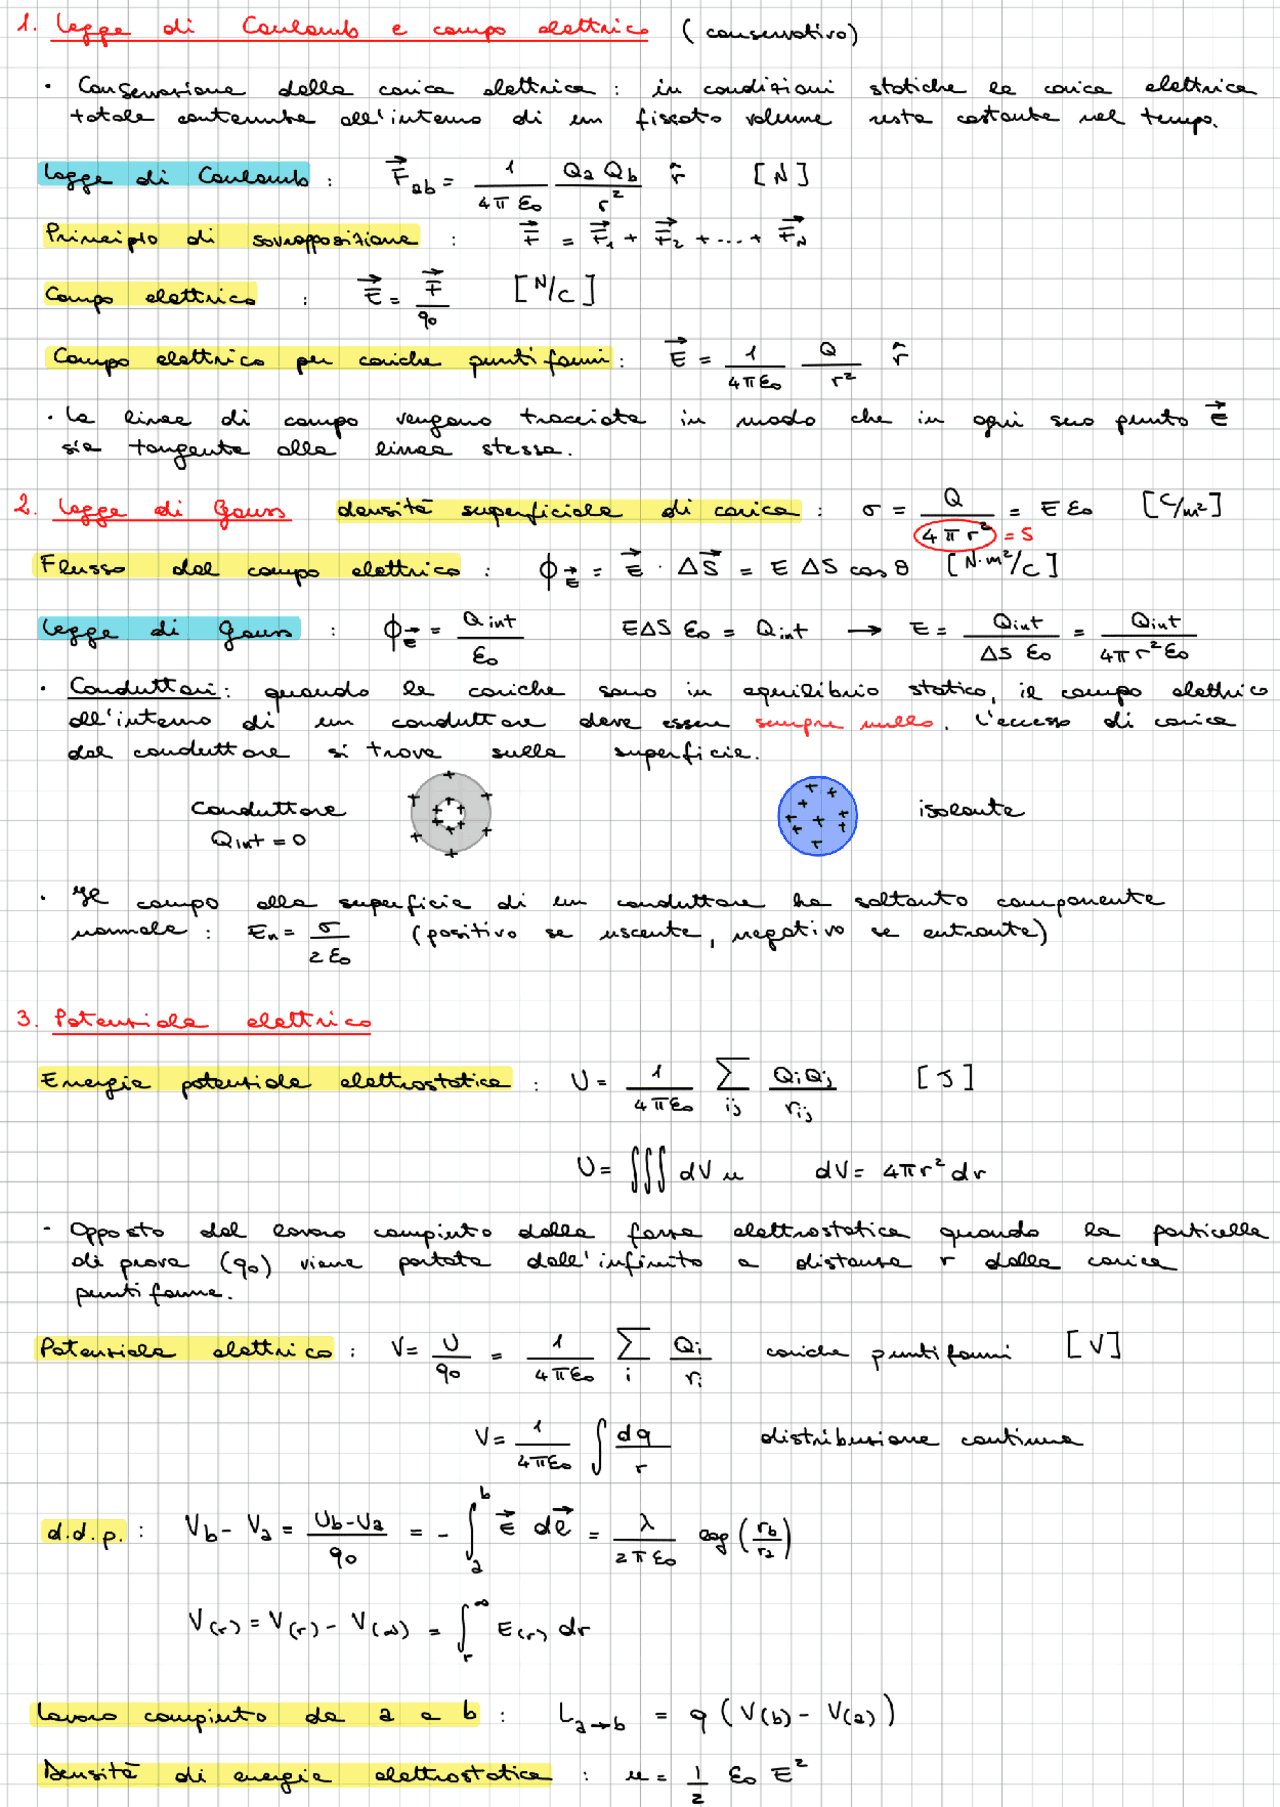 1. Legge di Coulomb e campo elettrico (conservativo)
· Conservazione della carica elettrica : in condizioni statiche la carica elettrica
totale contenuta all'interno di un fissato volume resta costante nel tempo.
Legge di Coulomb : F⃗ab = 1/(4π ε0) (Qa Qb)/r² r̂ [N]
Principio di sovrapposizione : F⃗ = F⃗1 + F⃗2 + ... + F⃗N
Campo elettrico : E⃗ = F⃗/q0 [N/C]
Campo elettrico per cariche puntiformi : E⃗ = 1/(4πε0) Q/r² r̂
· Le linee di campo vengono tracciate in modo che in ogni suo punto E⃗
sia tangente alla linea stessa.
2. Legge di Gauss densità superficiale di carica : σ = Q/(4πr²) = E ε0 [C/m²]
= S
Flusso del campo elettrico : ϕE⃗ = E⃗ · ΔS⃗ = E ΔS cos θ [N·m²/C]
Legge di Gauss : ϕE⃗ = Qint/ε0 EΔS ε0 = Qint → E = Qint/(ΔS ε0) = Qint/(4πr²ε0)
· Conduttori : quando le cariche sono in equilibrio statico, il campo elettrico
all'interno di un conduttore deve essere sempre nullo. L'eccesso di carica
del conduttore si trova sulla superficie.
Conduttore
Qint = 0
isolante
· Il campo alla superficie di un conduttore ha soltanto componente
normale : En = σ/(2ε0) (positivo se uscente, negativo se entrante)
3. Potenziale elettrico
Energia potenziale elettrostatica : U = 1/(4πε0) ∑ij QiQj/rij [J]
U = ∫∫∫ dV u dV = 4πr²dr
- Opposto del lavoro compiuto dalla forza elettrostatica quando la particella
di prova (q0) viene portata dall'infinito a distanza r dalla carica
puntiforme.
Potenziale elettrico : V = U/q0 = 1/(4πε0) ∑i Qi/ri cariche puntiformi [V]
V = 1/(4πε0) ∫ dq/r distribuzione continua
d.d.p. : Vb - Va = (Ub-Ua)/q0 = - ∫ₐᵇ E⃗ dℓ⃗ = λ/(2πε0) log (rb/ra)
V(r) = V(r) - V(∞) = ∫r^∞ E(r) dr
Lavoro compiuto da a a b : La→b = q (V(b) - V(a))
Densità di energia elettrostatica : u = 1/2 ε0 E²